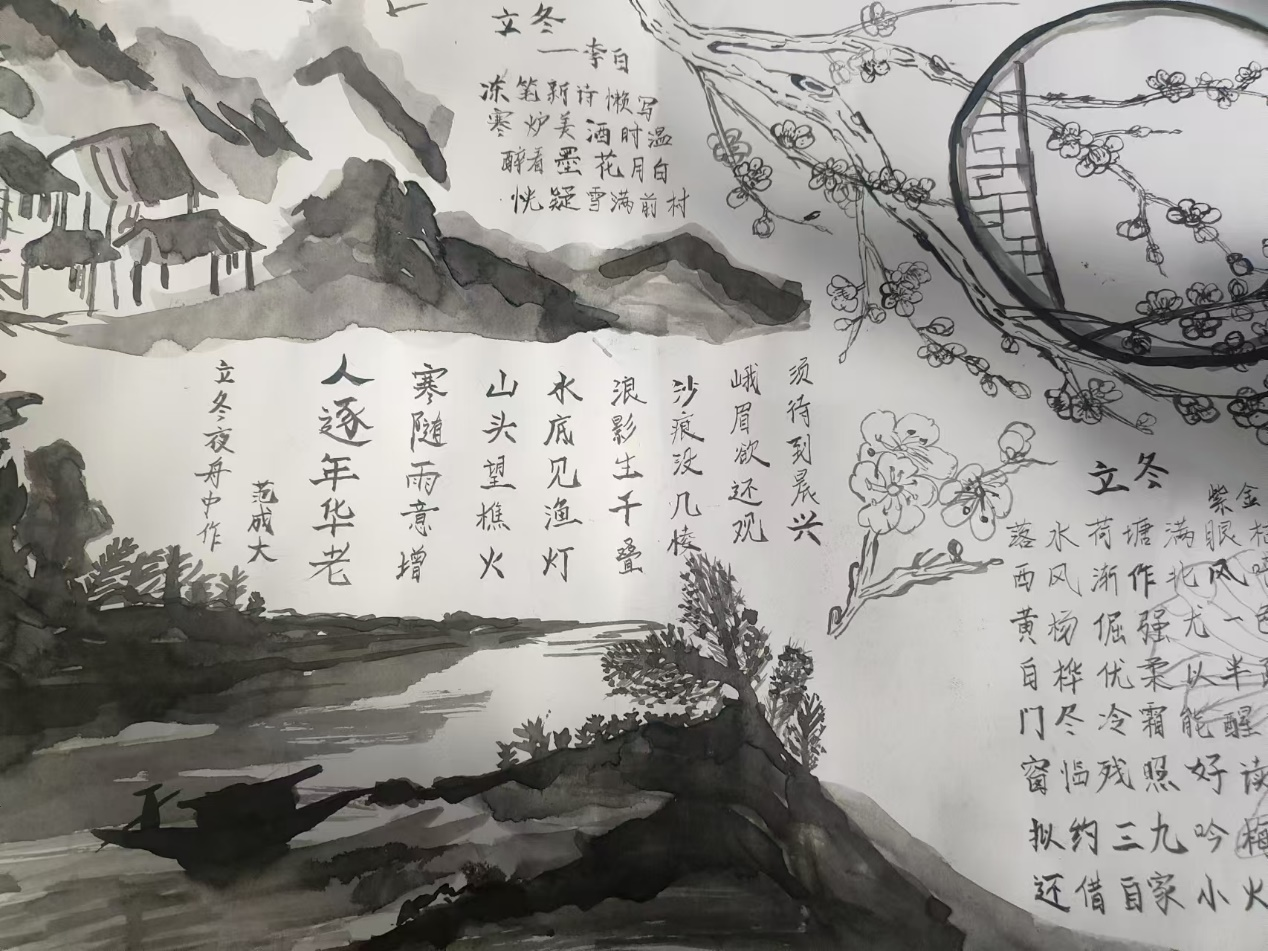 立冬
—李白
冻笔新诗懒写
寒炉美酒时温
醉看墨花月白
恍疑雪满前村
立冬夜舟中作
范成大
人逐年华老
寒随雨意增
山头望樵火
水底见渔灯
浪影生千叠
沙痕没几棱
峨眉欲还观
须待到晨兴
立冬
紫金
落水荷塘满眼
西风渐作北风
黄杨倔强尤一色
自桦优柔以半
门尽冷霜能醒
窗临残照好读
拟约三九吟梅
还借自家小火